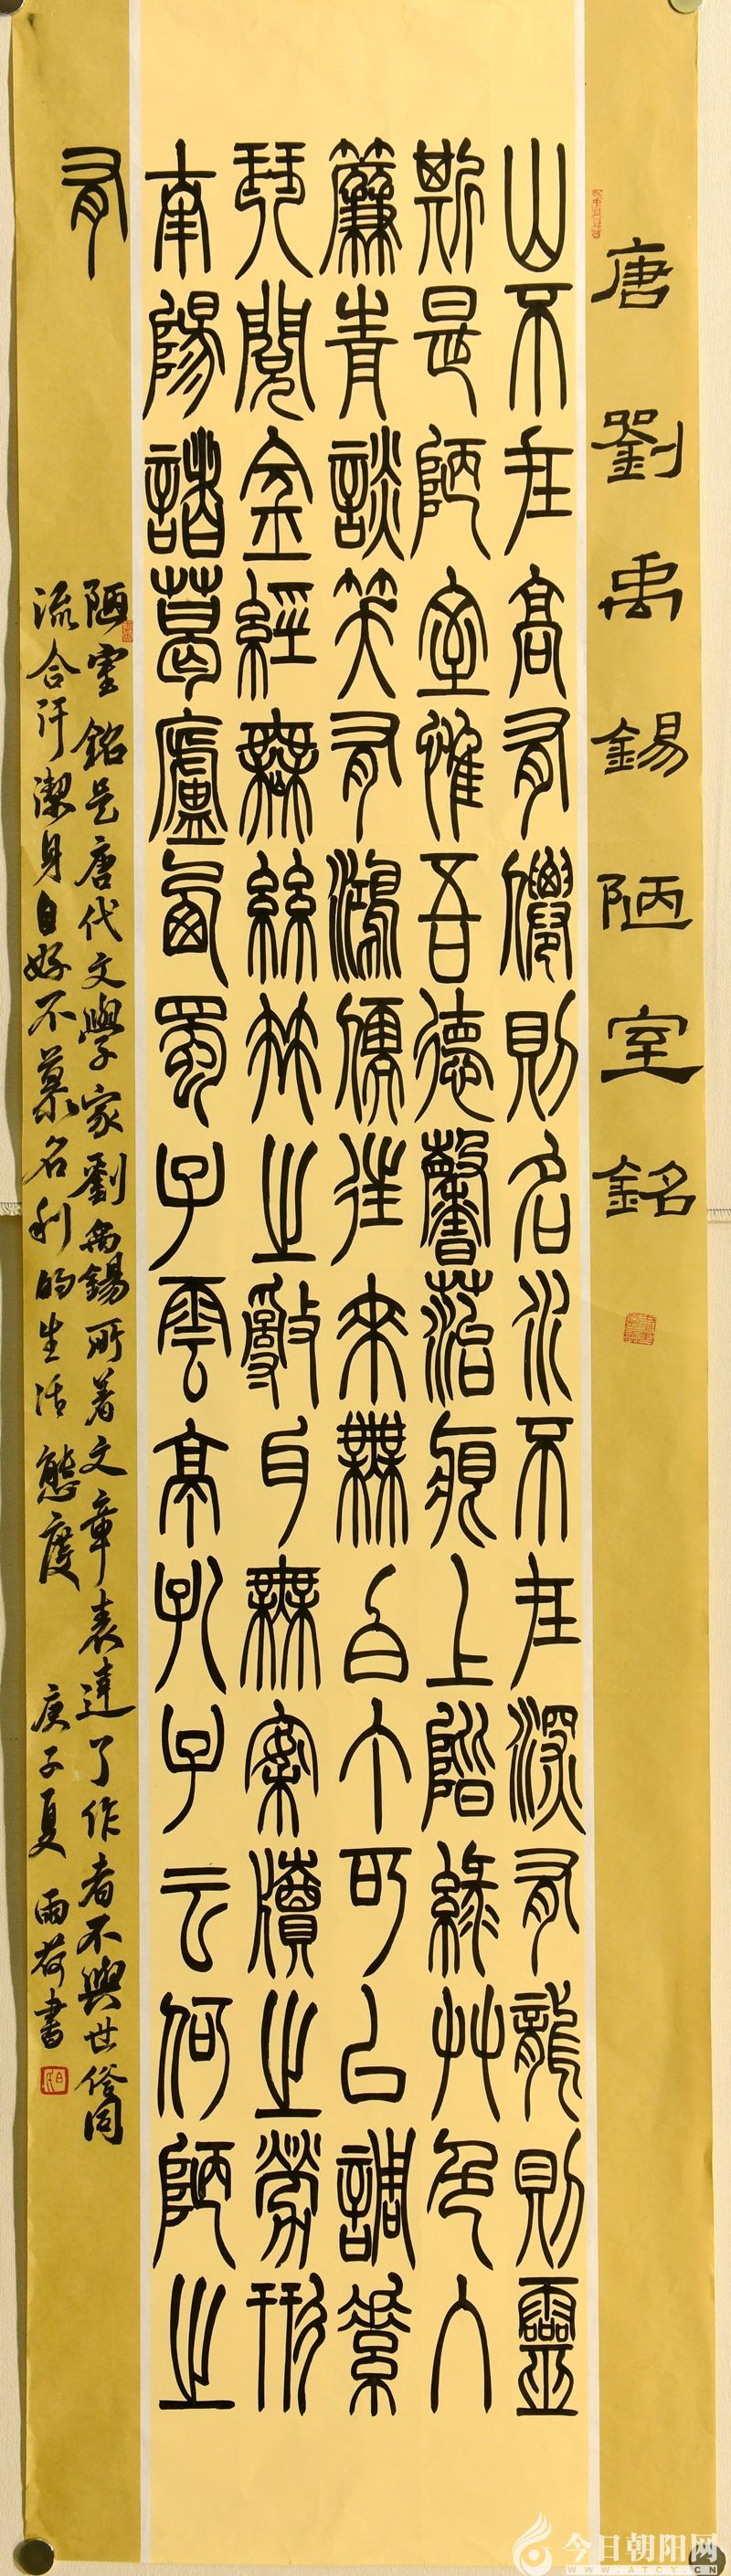 唐劉禹錫陋室銘
山不在高有僊則名水不在深有龍則靈
斯是陋室惟吾德馨菭痕上階綠艸色入
簾青談笑有鴻儒往來無白丁可以調素
琴閱金經無絲竹之亂耳無案牘之勞形
南陽諸葛廬西蜀子雲亭孔子云何陋之
有
陋室銘是唐代文學家劉禹錫所著文章表達了作者不與世俗同
流合汙潔身自好不慕名利的生活態度 庚子夏 雨荷書
今日朝阳网
WWW.ATCY.CN